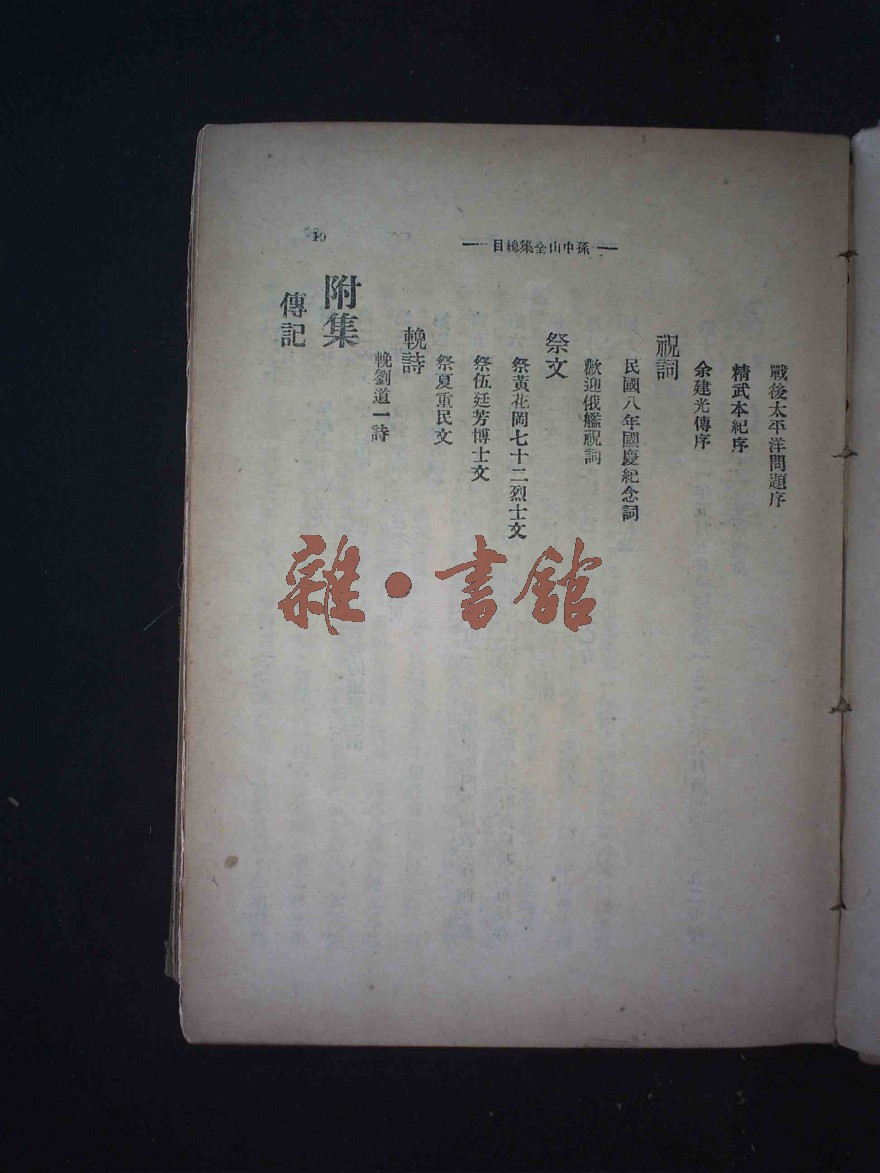 — 孫中山全集總目 —
10
戰後太平洋問題序
精武本紀序
余建光傳序
祝詞
民國八年國慶紀念詞
歡迎俄艦祝詞
祭文
祭黃花岡七十二烈士文
祭伍廷芳博士文
祭夏重民文
輓詩
輓劉道一詩
附集
傳記
雜·書館